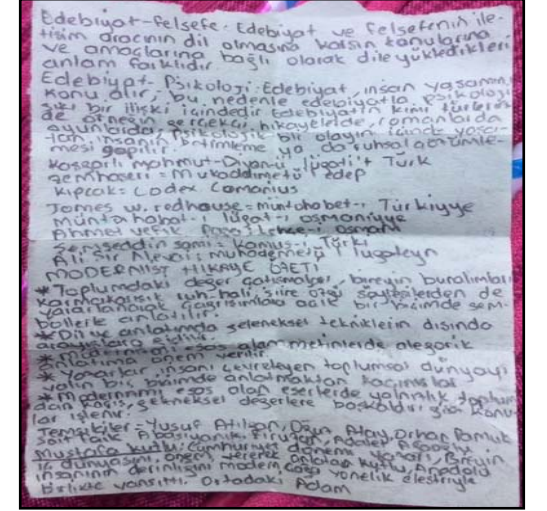 Edebiyat-Felsefe: Edebiyat ve felsefenin ile-
tişim aracının dil olmasına karşın konularına
ve amaçlarına bağlı olarak dile yükledikleri
anlam farklıdır
Edebiyat-Psikoloji: Edebiyat, insan yaşamını
konu alır, bu nedenle edebiyatla psikoloji
sıkı bir ilişki içindedir Edebiyatın kimi türlerin
de örneğin gerçekçi hikayelerde, romanlarda
oyunlarda, psikolojik bir olayın içinde yaşa-
yan insanın ya da ruhsal çözümle-
mesi yapılır.
Kaşgarlı Mahmut-Divan-ü lügati't Türk
Zemhşeri = Mukaddimetü'l edep
Kıpçak = Codex Comanius
James w. redhouse = müntahabat-ı Türkiyye
Müntahabat-ı lügat-ı osmaniyye
Ahmet vefik lehce-i osmani
Şemseddin sami = kamus-ı Türki
Ali Şir Nevai = muhakemetü'l lugateyn
MODERNİST HİKAYE
*Toplumdaki değer çatışmaları, bireyin bunalımları
karmakarışık ruh hali, şiire özgü söyleyişlerden de
yararlanarak çağrışımlara açık bir biçimde sem-
bollerle anlatılır.
*Dil ve anlatımda geleneksel tekniklerin dışında
arayışlara gidilir.
*Modernizmi esas alan metinlerde alegorik
anlatıma önem verilir.
*Yazarlar insanı çevreleyen toplumsal dünyayı
yalın bir biçimde anlatmaktan kaçınırlar
*Modernizmi esas alan eserlerde yalnızlık, toplum
dan kaçış, geleneksel değerlere başkaldırı gibi konu
lar işlenir.
Temsilciler = Yusuf Atılgan, Oğuz Atay, Orhan Pamuk
Sait Faik Abasıyanık, Firuzan, Adalet Ağaoğlu
Mustafa Kutlu: Cumhuriyet dönemi yazarı. Bireyin
iç dünyasını önem vererek anlatan Kutlu, Anadolu
insanının derinliğini modern çağa yönelik eleştiriyle
birlikte yansıttı. Ortadaki Adam